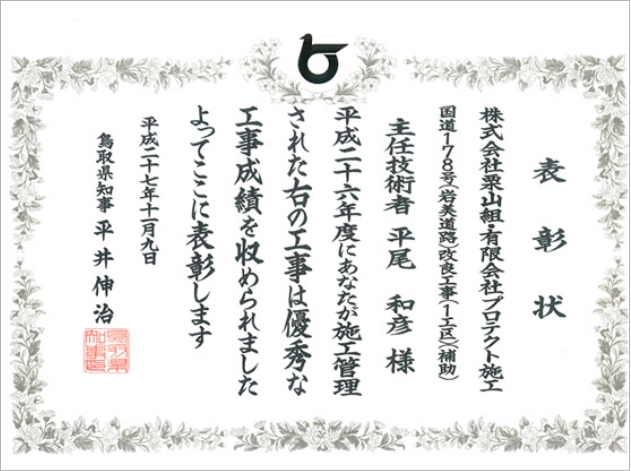 表彰状
株式会社栗山組・有限会社プロテクト施工
国道178号(岩美道路)改良工事(1工区)(補助)
主任技術者 平尾 和彦 様
平成二十六年度にあなたが施工管理
された右の工事は優秀な
工事成績を収められました
よってここに表彰します
平成二十七年十一月九日
鳥取県知事 平井伸治